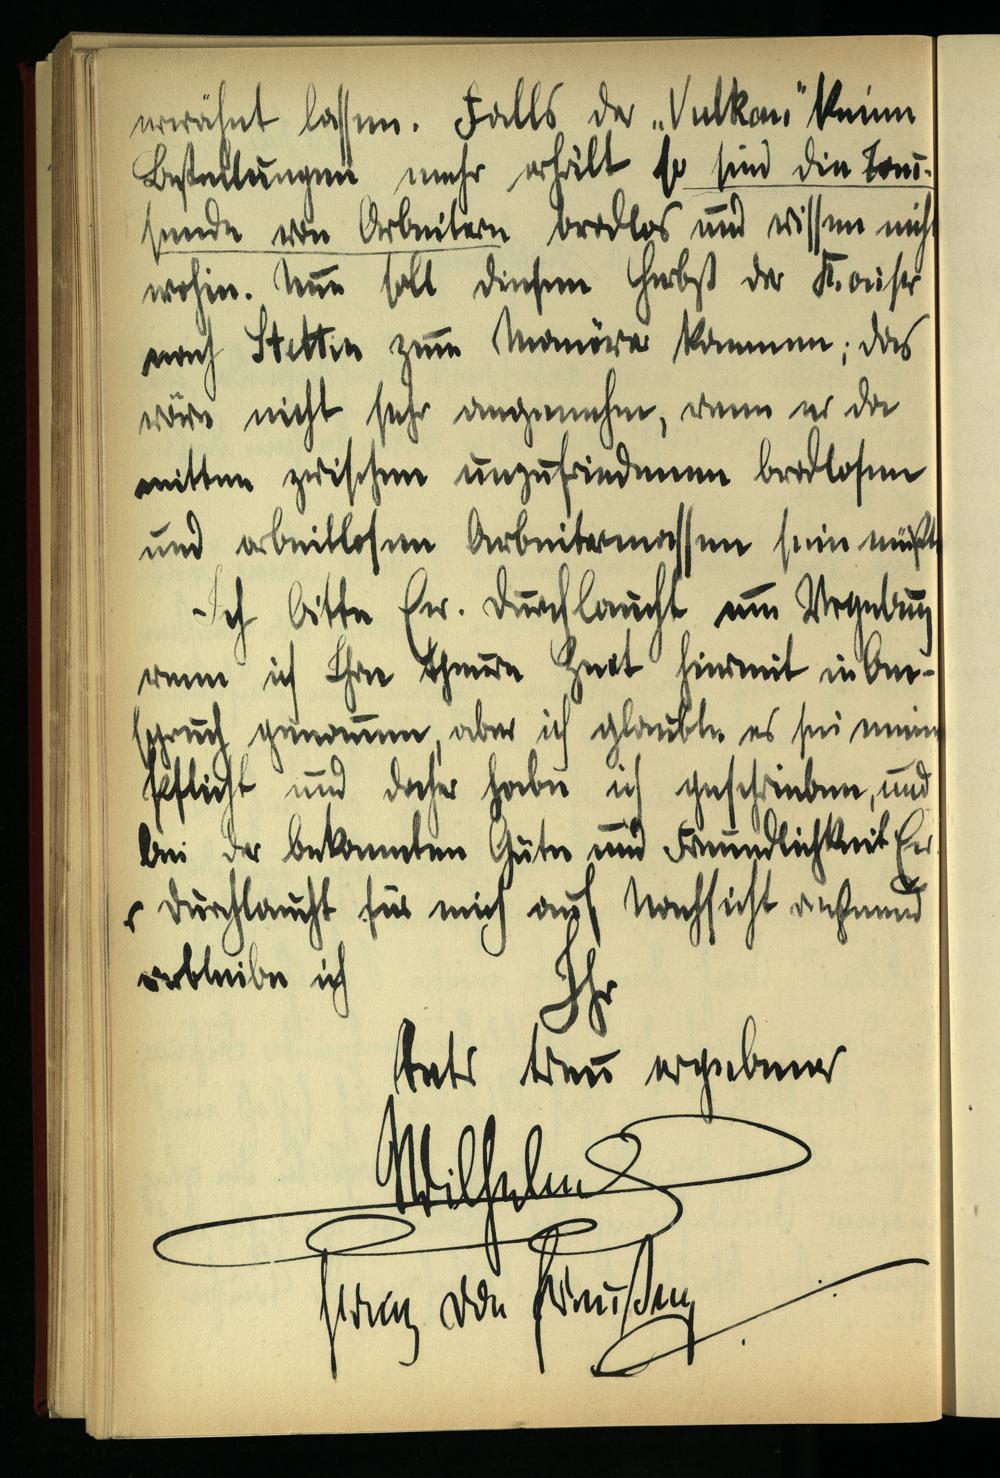 erwähnt lassen. Falls der „Vulkan" keine
Bestellungen mehr erhält so sind die Tau-
sende von Arbeitern brodlos und wissen nicht
wohin. Nun soll diesen Herbst der Kaiser
nach Stettin zum Manöver kommen; das
wäre nicht sehr angenehm, wenn er da
mitten zwischen unzufriedenen brodlosen
und arbeitlosen Arbeitermassen sein müßte
Ich bitte Ew. Durchlaucht um Vergebung
wenn ich Ihre theure Zeit hiermit in An-
spruch genommen, aber ich glaubte es sei meine
Pflicht und daher habe ich geschrieben, und
bei der bekannten Güte und Freundlichkeit Ew.
Durchlaucht für mich auf Nachsicht
verbleibe ich Ihr
stets treu ergebener
Wilhelm
Prinz von Preußen